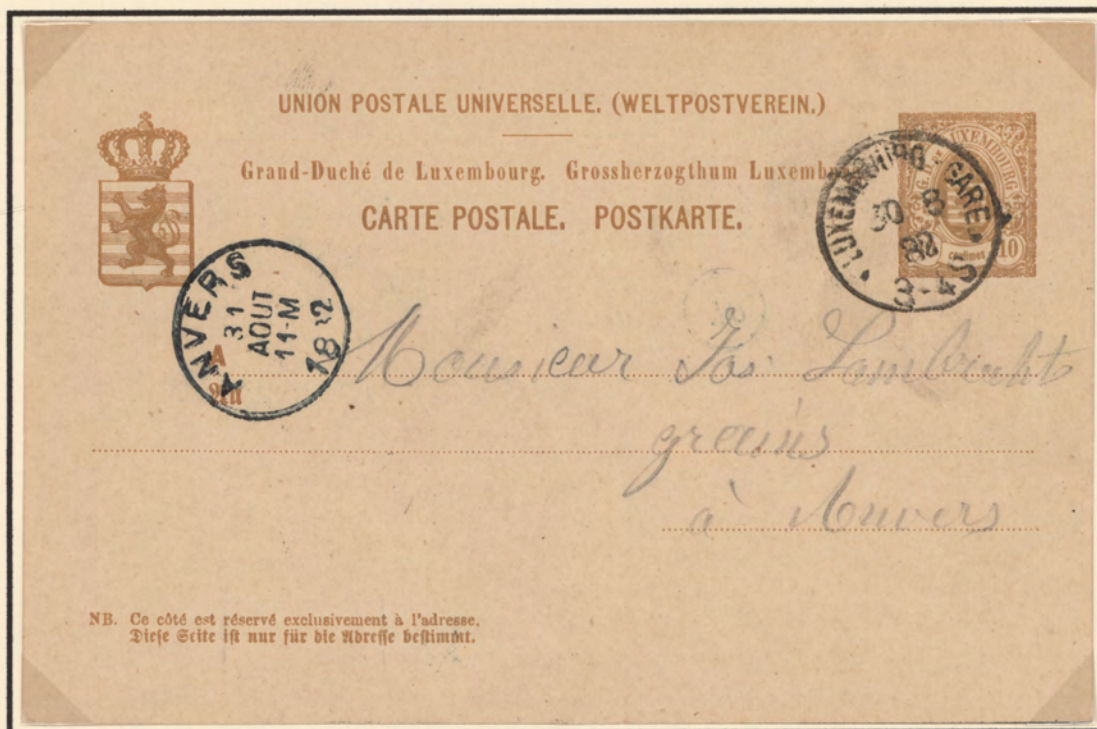 UNION POSTALE UNIVERSELLE. (WELTPOSTVEREIN.)
Grand-Duché de Luxembourg. Grossherzogthum Luxemb
CARTE POSTALE. POSTKARTE.
G. D. LUXEMBOURG
centimes 10
LUXEMBOURG-GARE
30 8
82
3-4 S
ANVERS
31
AOUT
11-M
1882
A
An
Monsieur Jos Lambrecht
grains
à Anvers
NB. Ce côté est réservé exclusivement à l'adresse.
Diese Seite ist nur für die Adresse bestimmt.